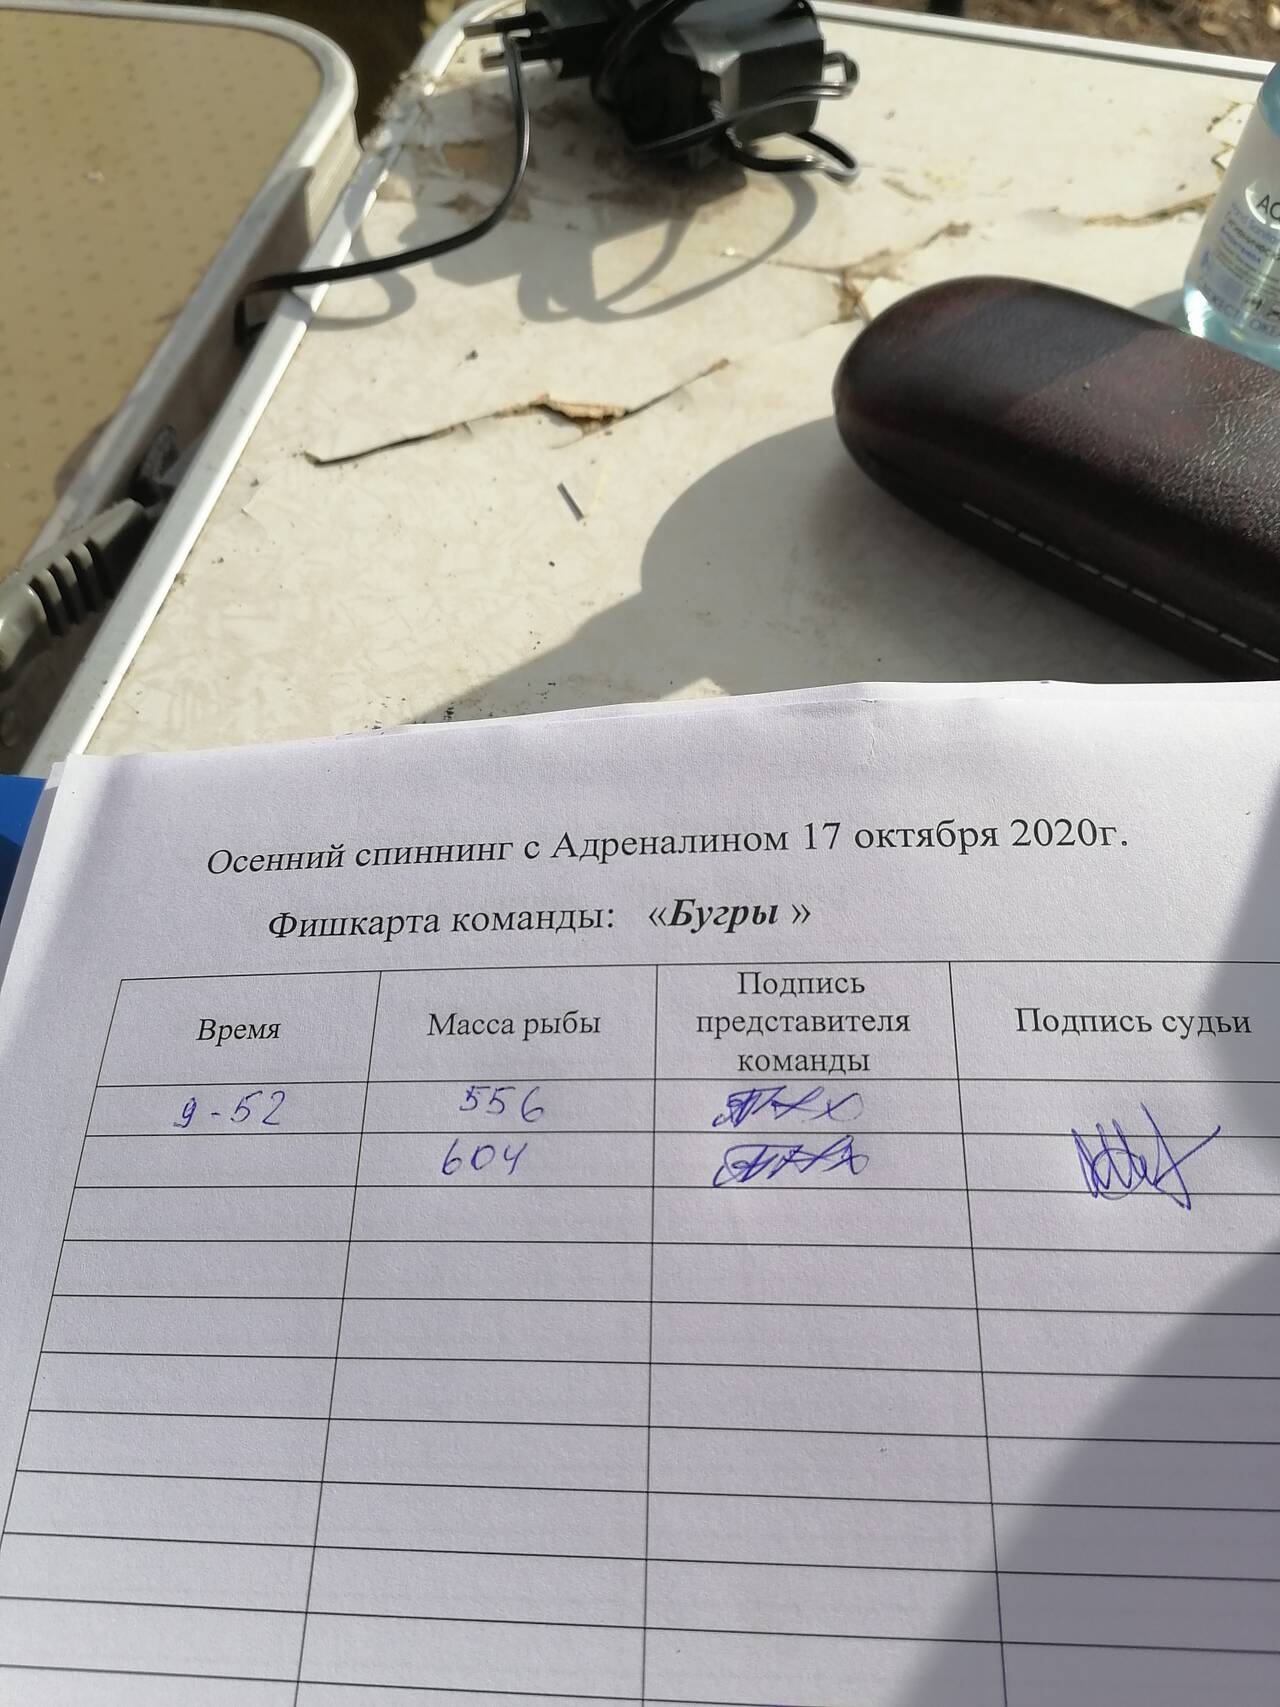 Осенний спиннинг с Адреналином 17 октября 2020г.
Фишкарта команды: «Бугры »
Время
Масса рыбы
Подпись
представителя
команды
Подпись судьи
9-52
556
604